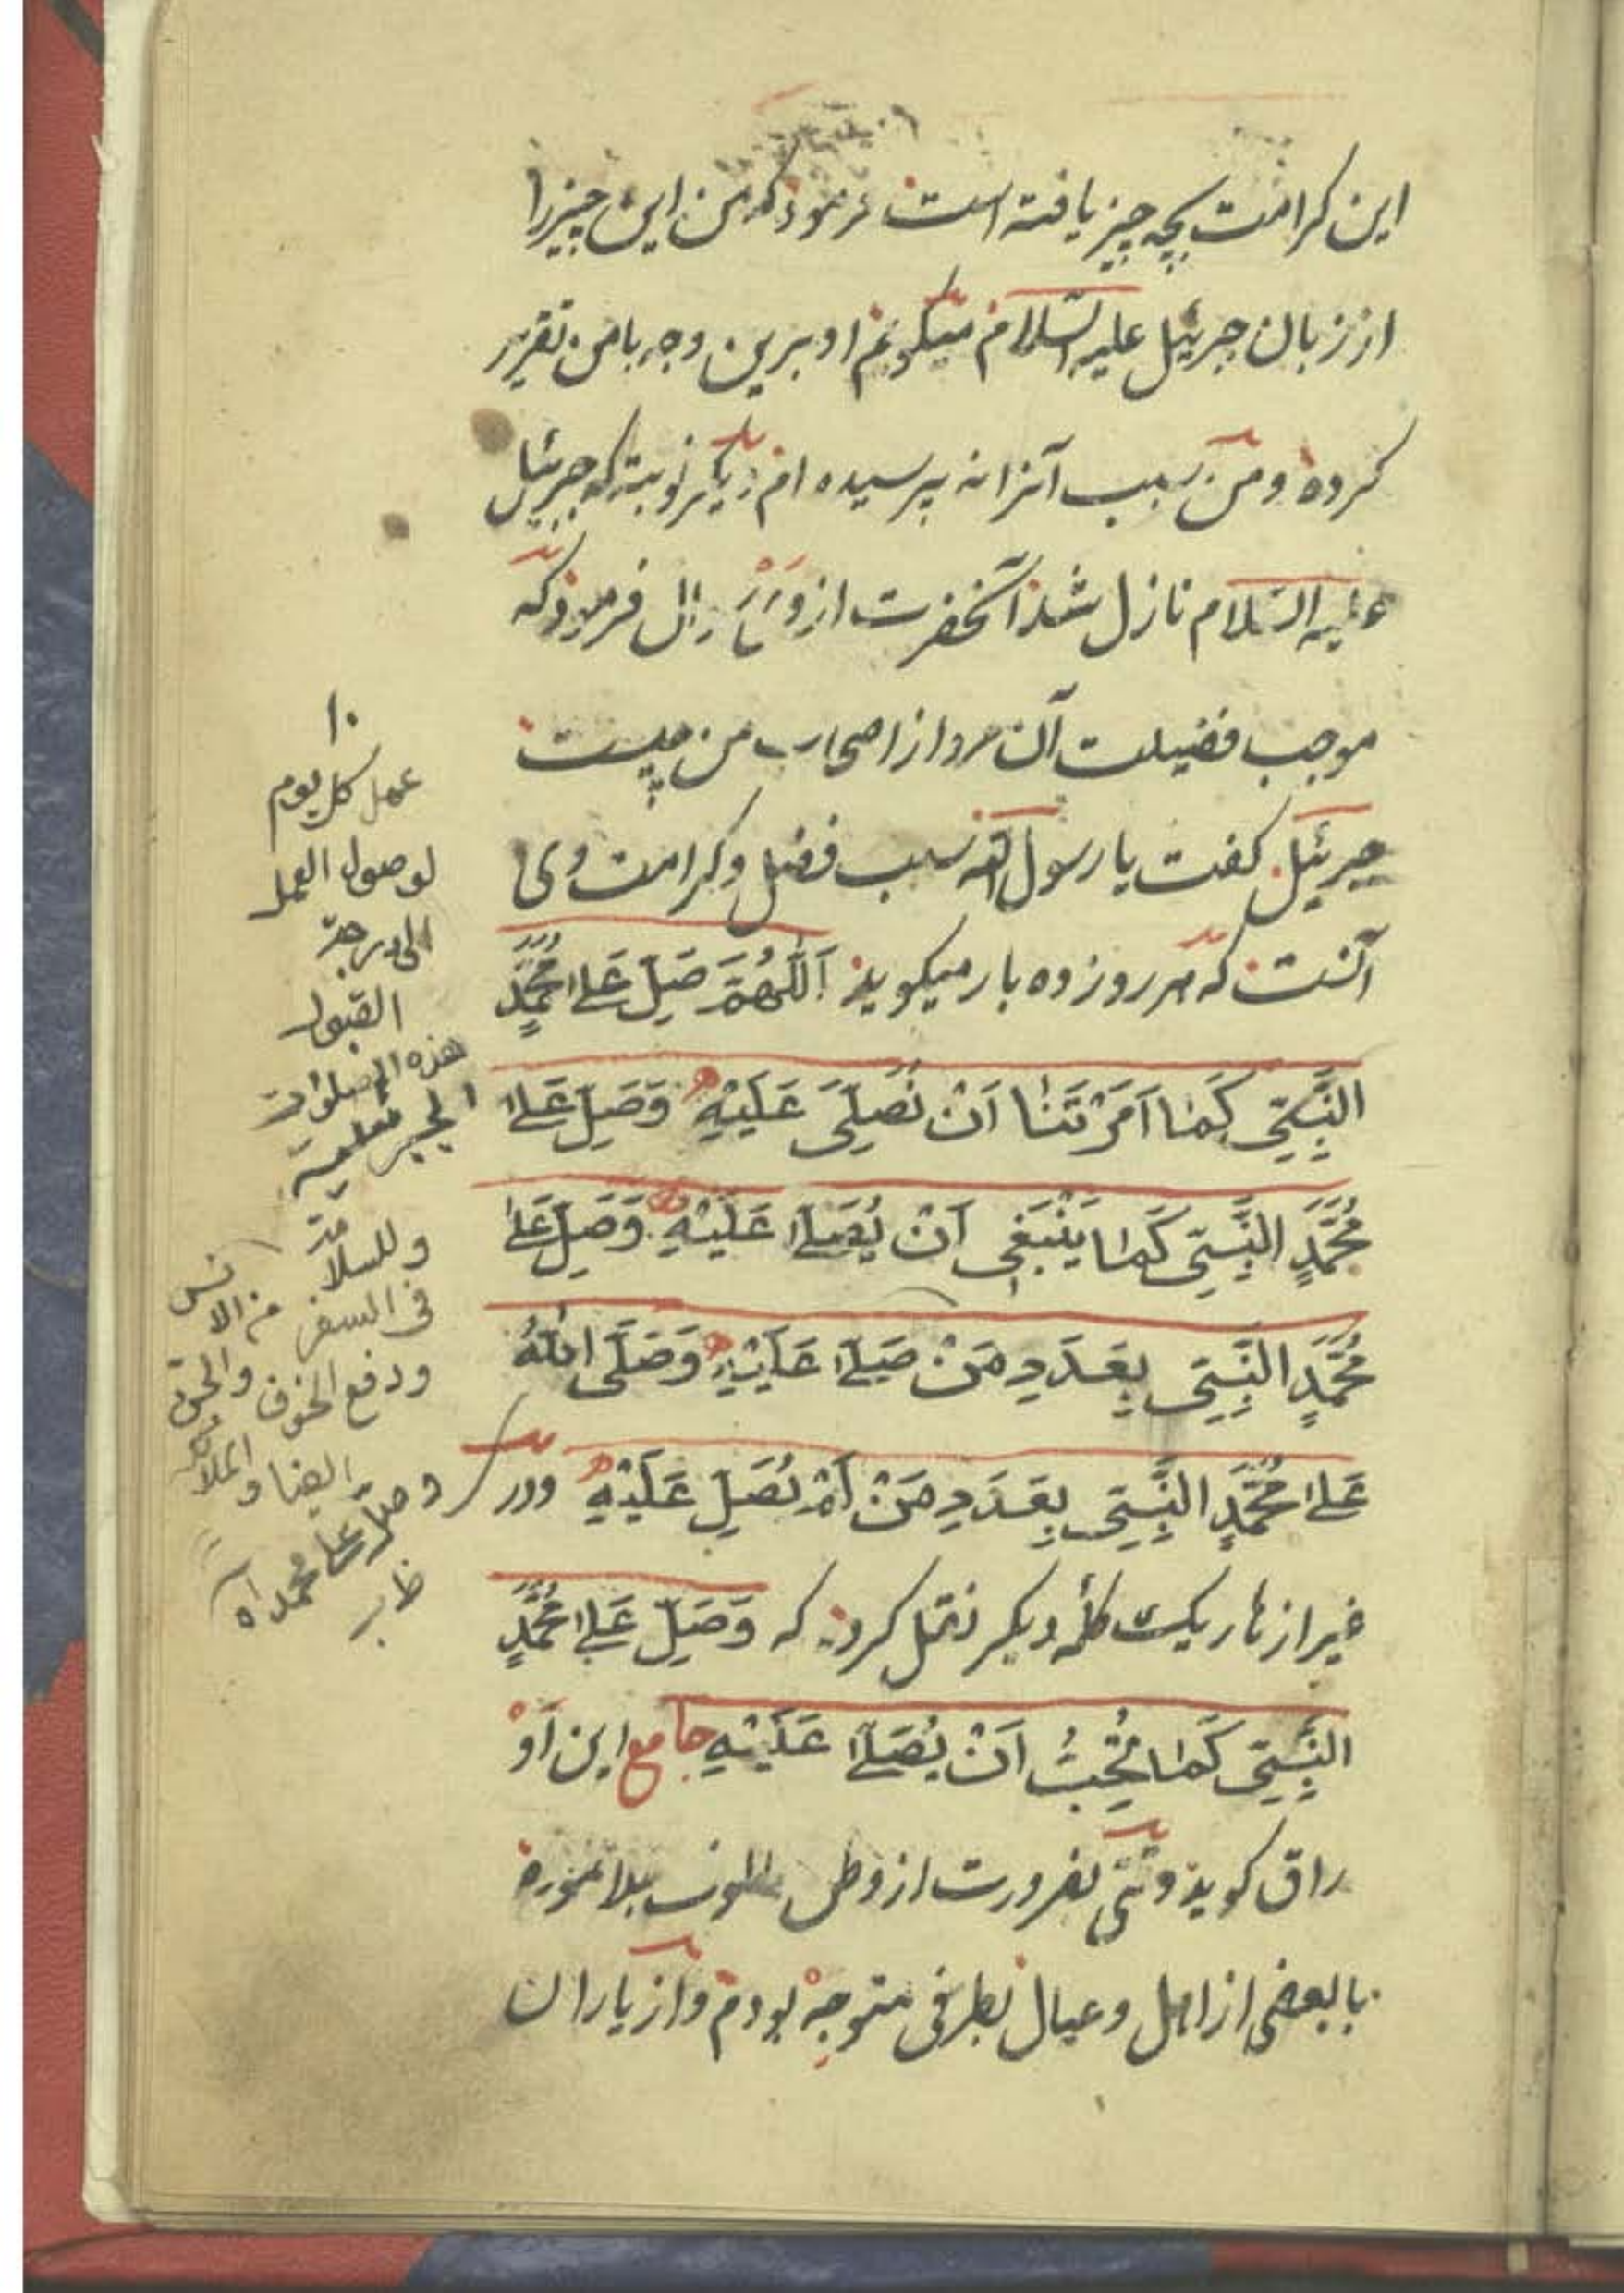 این کرامت بچه چیز یافته است فرموذ که من این چیز را
از زبان جبرئیل علیه السلام میکویم او برین وجه با من تقریر
کرده و من سبب آنرا نه پرسیده ام دیکر نوبته که جبرئیل
علیه السلام نازل شذ آنحضرت از وی سؤال فرموذ که
موجب فضیلت آن مرد از اصحاب من چیست
جبرئیل کفت یا رسول الله سبب فضل و کرامت وی
آنست که هر روز ده بار میکویذ اَللّٰهُمَّ صَلِّ عَلىٰ مُحَمَّدٍ
النَّبِيِّ كَمَا اَمَرْتَنَا اَنْ نُصَلِّيَ عَلَيْهِ وَصَلِّ عَلىٰ
مُحَمَّدٍ النَّبِيِّ كَمَا يَنْبَغِي اَنْ يُصَلىٰ عَلَيْهِ وَصَلِّ عَلىٰ
مُحَمَّدٍ النَّبِيِّ بِعَدَدِ مَنْ صَلىٰ عَلَيْهِ وَصَلَّى اللّٰهُ
عَلىٰ مُحَمَّدٍ النَّبِيِّ بِعَدَدِ مَنْ لَمْ يُصَلِّ عَلَيْهِ ودر
غیر ازهار یک کلمه دیکر نقل کرده که وَصَلِّ عَلىٰ مُحَمَّدٍ
النَّبِيِّ كَمَا تُحِبُّ اَنْ يُصَلىٰ عَلَيْهِ جامع این اَوْ
راق کویذ وقتی بضرورت از وطن مألوف
با بعضی از اهل و عیال بطرفی متوجه بودم و از یاران
١٠
عمل كل يوم
لوصول العمل
الى درجة
القبول
هذه الصلوات
وللسلامة
في السفر من الانس
ودفع الخوف والجن
ايضا و
وصل على محمد اه